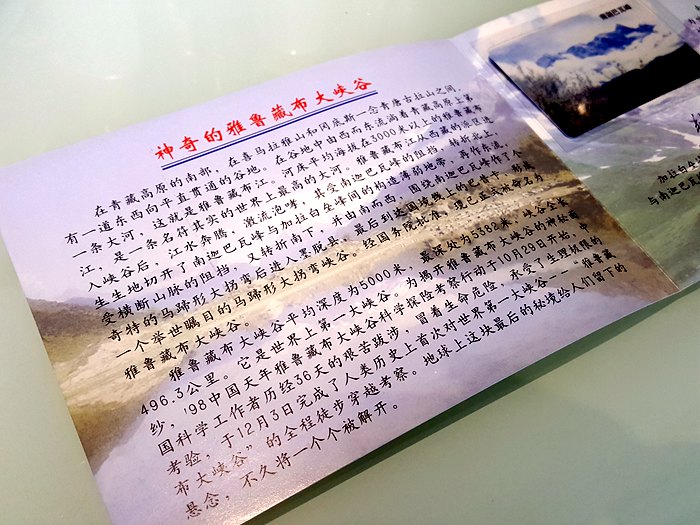 神奇的雅鲁藏布大峡谷
在青藏高原的南部，在喜马拉雅山和冈底斯—念青唐古拉山之间，
有一道东西向平直贯通的谷地。在谷地中由西而东流淌着青藏高原上第
一条大河，这就是雅鲁藏布江。河床平均海拔在3000米以上的雅鲁藏布
江，是一条名符其实的世界上最高的大河。雅鲁藏布江从西藏的派区进
入峡谷后，江水奔腾，激流泡哮，其受南迦巴瓦峰的阻挡，转折北上，
生生地切开了南迦巴瓦峰与加拉白垒峰间的构造薄弱地带，再作东流，
受横断山脉的阻挡，又转折南下，并由南而西，围绕南迦巴瓦峰作了个
奇特的马蹄形大拐弯后进入墨脱县，最后到达国境线上的巴昔卡，形成
一个举世瞩目的马蹄形大拐弯峡谷。经国务院批准，现已正式命名为
雅鲁藏布大峡谷。
雅鲁藏布大峡谷平均深度为5000米，最深处为5382米，峡谷全长
496.3公里。它是世界上第一大峡谷。为揭开雅鲁藏布大峡谷的神秘面
纱，'98中国天年雅鲁藏布大峡谷科学探险考察行动于10月29日开始，中
国科学工作者历经36天的艰苦跋涉，冒着生命危险，承受了生理极限的
考验，于12月3日完成了人类历史上首次对世界第一大峡谷——"雅鲁藏
布大峡谷"的全程徒步穿越考察。地球上这块最后的秘境给人们留下的
悬念，不久将一个个被解开。
南迦巴瓦峰
加拉白垒
与南迦巴瓦